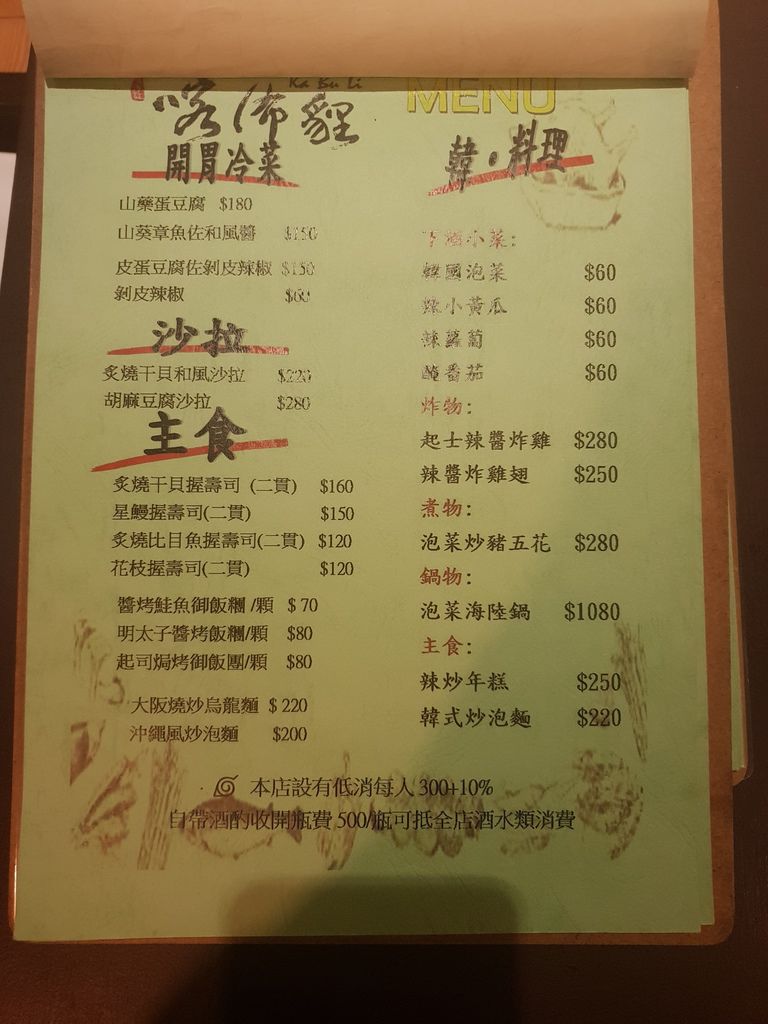 Ka Bu Li
MENU
喀佈貍
開胃冷菜
山藥蛋豆腐 $180
山葵章魚佐和風醬 $150
皮蛋豆腐佐剝皮辣椒 $150
剝皮辣椒 $60
沙拉
炙燒干貝和風沙拉 $220
胡麻豆腐沙拉 $280
主食
炙燒干貝握壽司 (二貫) $160
星鰻握壽司(二貫) $150
炙燒比目魚握壽司(二貫) $120
花枝握壽司(二貫) $120
醬烤鮭魚御飯糰 /顆 $ 70
明太子醬烤飯糰/顆 $80
起司焗烤御飯團/顆 $80
大阪燒炒烏龍麵 $ 220
沖繩風炒泡麵 $200
韓・料理
下酒小菜:
韓國泡菜 $60
辣小黃瓜 $60
辣蘿蔔 $60
醃番茄 $60
炸物:
起士辣醬炸雞 $280
辣醬炸雞翅 $250
煮物:
泡菜炒豬五花 $280
鍋物:
泡菜海陸鍋 $1080
主食:
辣炒年糕 $250
韓式炒泡麵 $220
本店設有低消每人 300+10%
自帶酒酌收開瓶費 500/瓶可抵全店酒水類消費